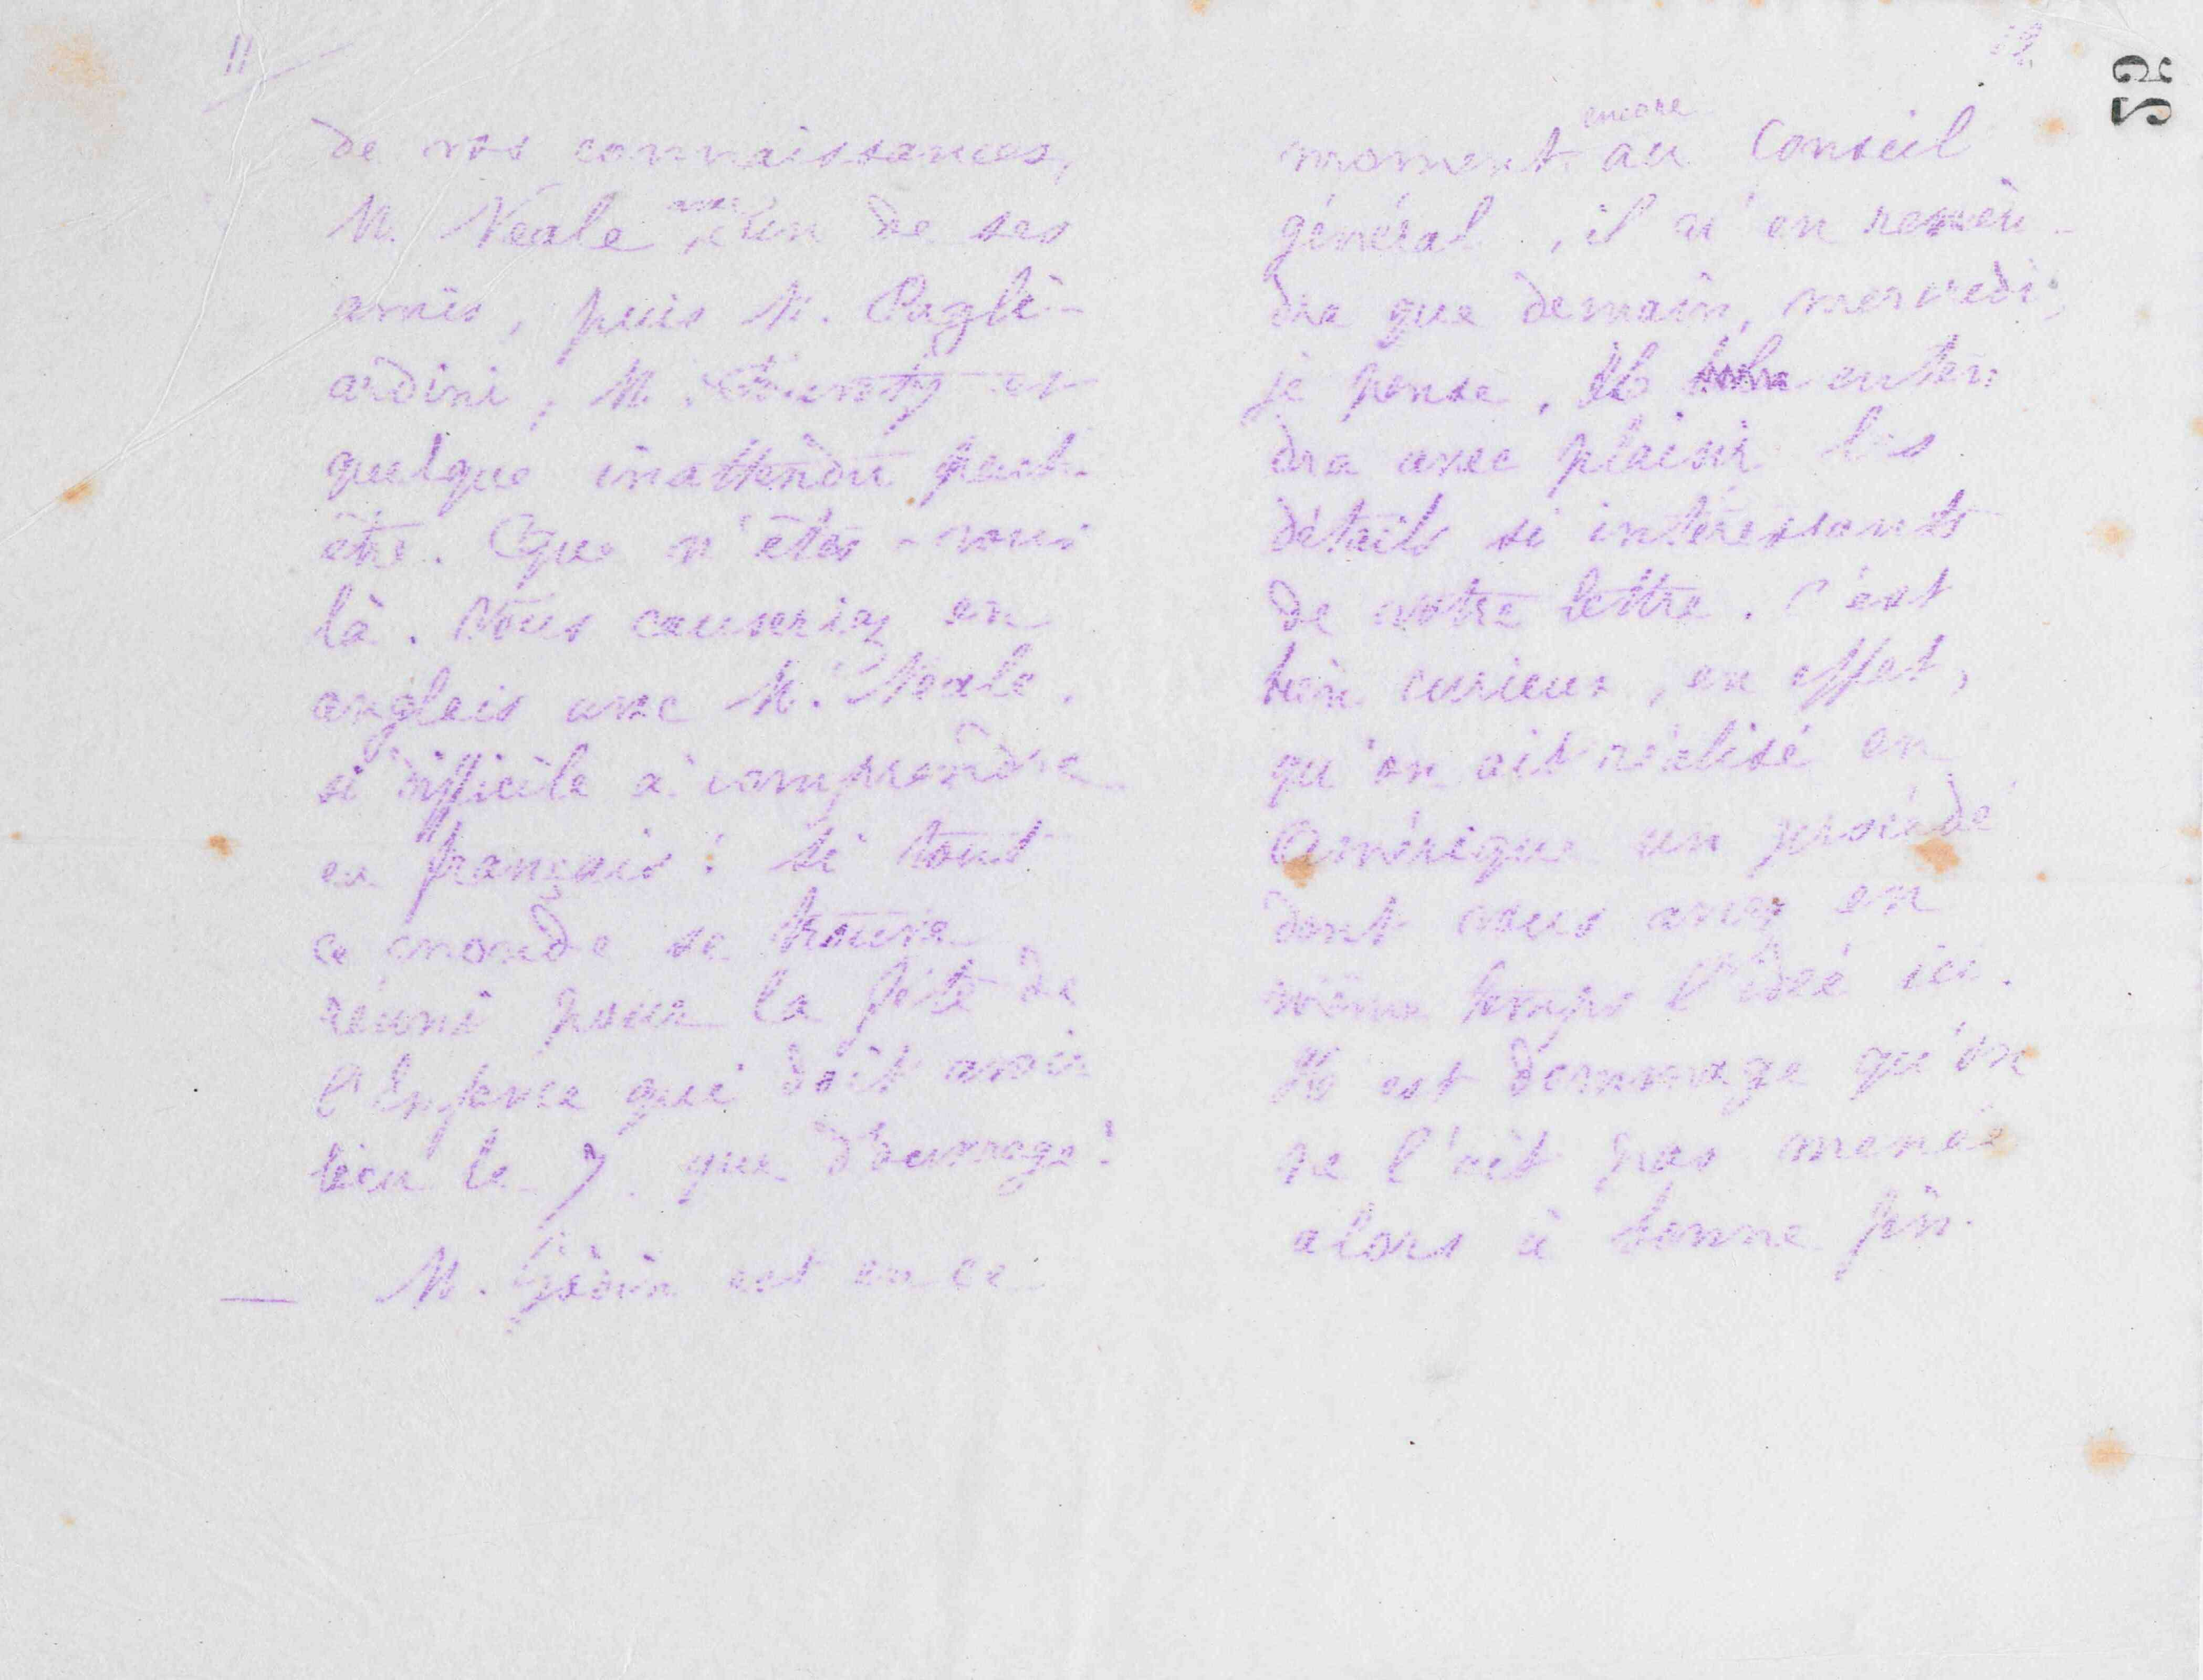 11
de vos connaissances,
M. Neale avec un de ses
amis, puis M. Pagli-
ardini, M. et
quelque inattendu peut-
être. Que n'êtes-vous
là. Vous causeriez en
anglais avec M. Neale,
si difficile à comprendre
en français! Si tout
ce monde se trouve
réuni pour la fête de
l'Enfance qui doit avoir
lieu le 7. que d'ouvrage!
— M. Godin est en ce
12
52
encore
moment au Conseil
général, il n'en revien-
dra que demain, mercredi,
je pense. Il enten-
dra avec plaisir les
détails si intéressants
de votre lettre. C'est
bien curieux, en effet,
qu'on ait réalisé en
Amérique un procédé
dont vous avez en
même temps l'idée ici.
Il est dommage qu'on
ne l'ait pas menée
alors à bonne fin.